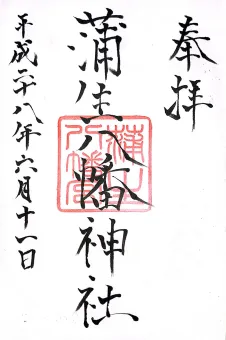 奉拝
蒲生八幡神社
平成二十八年六月十一日
蒲生八幡